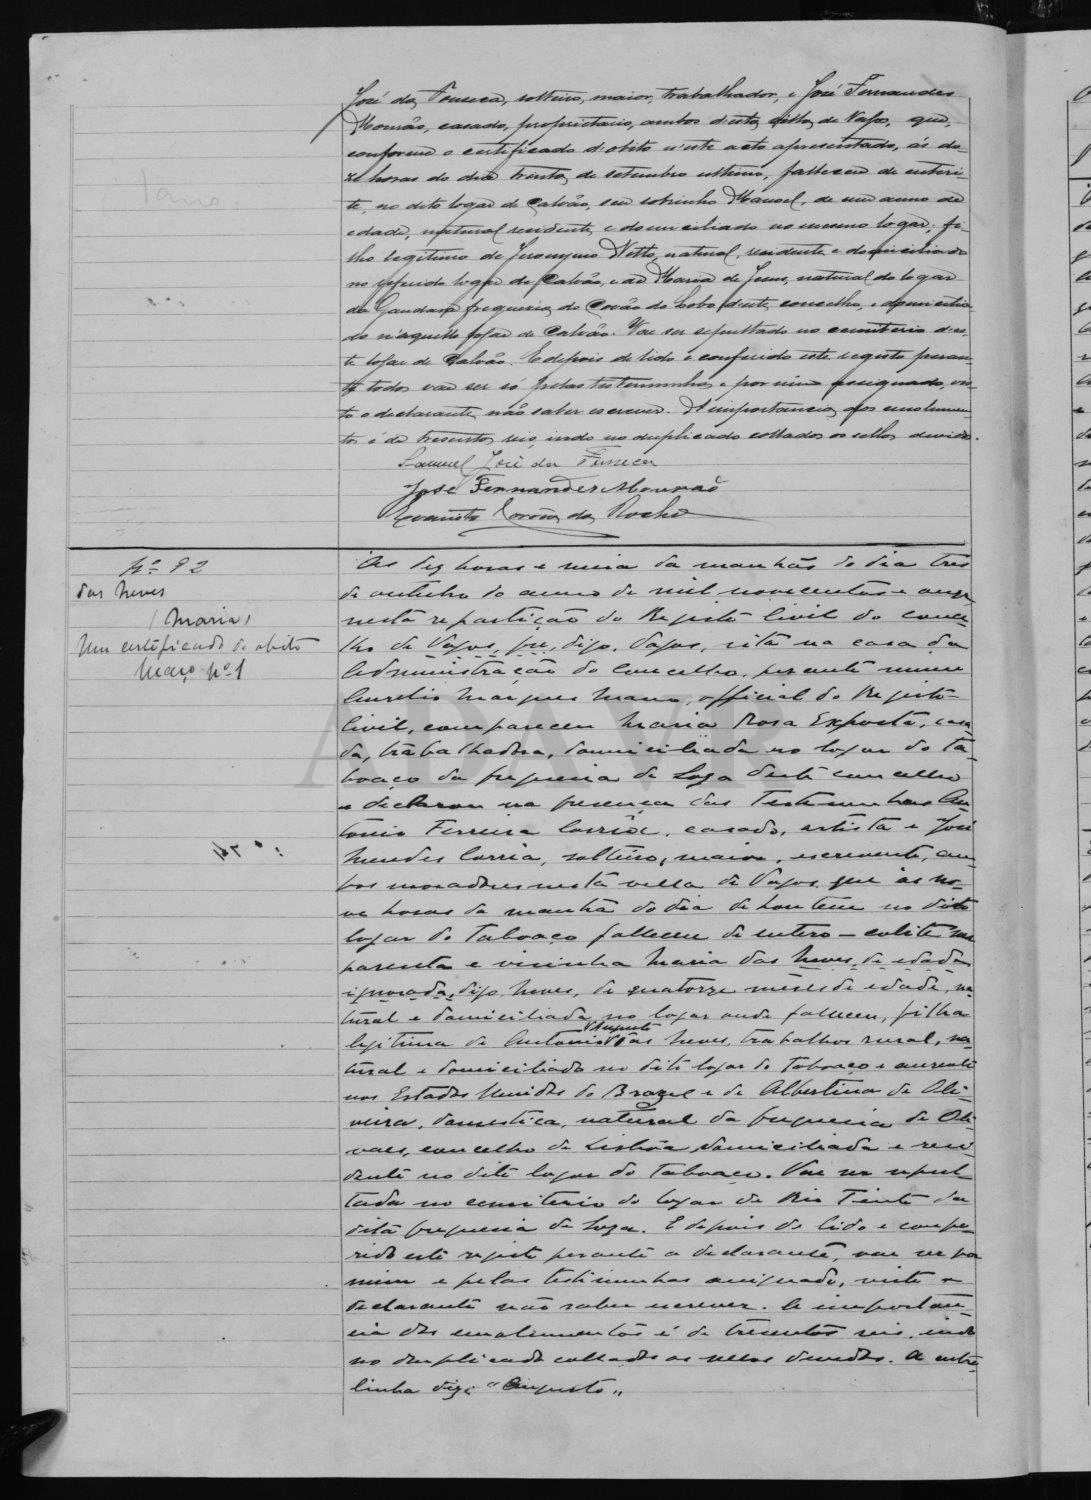 José da Fonseca, solteiro, maior, trabalhador, e José Fernandes
Mourão, casado, proprietario, ambos d'esta villa de Vagos, que,
conforme o certificado d'obito n'este acto apresentado, ás do-
ze horas do dia trinta de setembro ultimo, falleceu de enteri-
te, no dito logar de Calvão, seu sobrinho Manoel, de um anno de
edade, natural residente e domiciliado no mesmo logar, fi-
lho legitimo de Jeronymo Netto, natural, residente e domiciliado
no referido logar de Calvão, e de Maria de Jesus, natural do logar
da Gandara freguesia do Covão do Lobo d'este concelho, e domicilia-
do n'aquelle logar de Calvão. Vae ser sepultado no cemiterio d'es-
te logar de Calvão. E depois de lido e conferido este registo peran-
te todos vae ser só pelas testemunhas e por mim assignado, vis-
to o declarante não saber escrever. A importancia dos emolumen-
tos é de tresentos reis, indo no duplicado collados os sellos devidos.
Samuel José da Fonseca
José Fernandes Mourão
da Rocha
Nº 92
das Neves
(Maria)
Um certificado de obito
Março nº 1
Ás dez horas e meia da manhã do dia tres
de outubro do anno de mil novecentos e onze
nesta repartição do Registo Civil do conce-
lho de Vagos, que, digo, Vagos, sita na casa da
Administração do Concelho, perante mim
Aurelio Marques Mano, official do Registo
Civil, compareceu Maria Rosa Exposta, casa-
da, trabalhadora, domiciliada no logar do Ta-
boaço da freguesia de Soza deste concelho
e declarou na presença das testemunhas An-
tonio Ferreira Corrêa, casado, artista e José
Mendes Corrêa, solteiro, maior, escrevente, am-
bos moradores nesta villa de Vagos que ás no-
ve horas da manhã do dia de hontem no dito
logar do Taboaço falleceu de entero-colite sua
parenta e visinha Maria das Neves, de edade
ignorada, digo, Neves, de quatorze mêses de edade, na-
tural e domiciliada no logar onde falleceu, filha
Augusto
legitima de Antonio das Neves, trabalhos rural, na-
tural e domiciliado no dito logar do Taboaço e ausente
nos Estados Unidos do Brazil e de Albertina de Oli-
veira, domestica, natural da freguesia de Oli-
vaes, concelho de Lisbôa, domiciliada e resi-
dente no dito logar do Taboaço. Vae ser sepul-
tada no cemiterio do logar de Rio Tinto da
dita freguesia de Soza. E depois de lido e confe-
rido este registo perante a declarante, vae ser por
mim e pelas testimunhas assignado, visto a
declarante não saber escrever. A importan-
cia dos emolumentos é de tresentos reis, indo
no duplicado collados os sellos devidos. A entre-
linha diz: "Augusto"
ADAVR